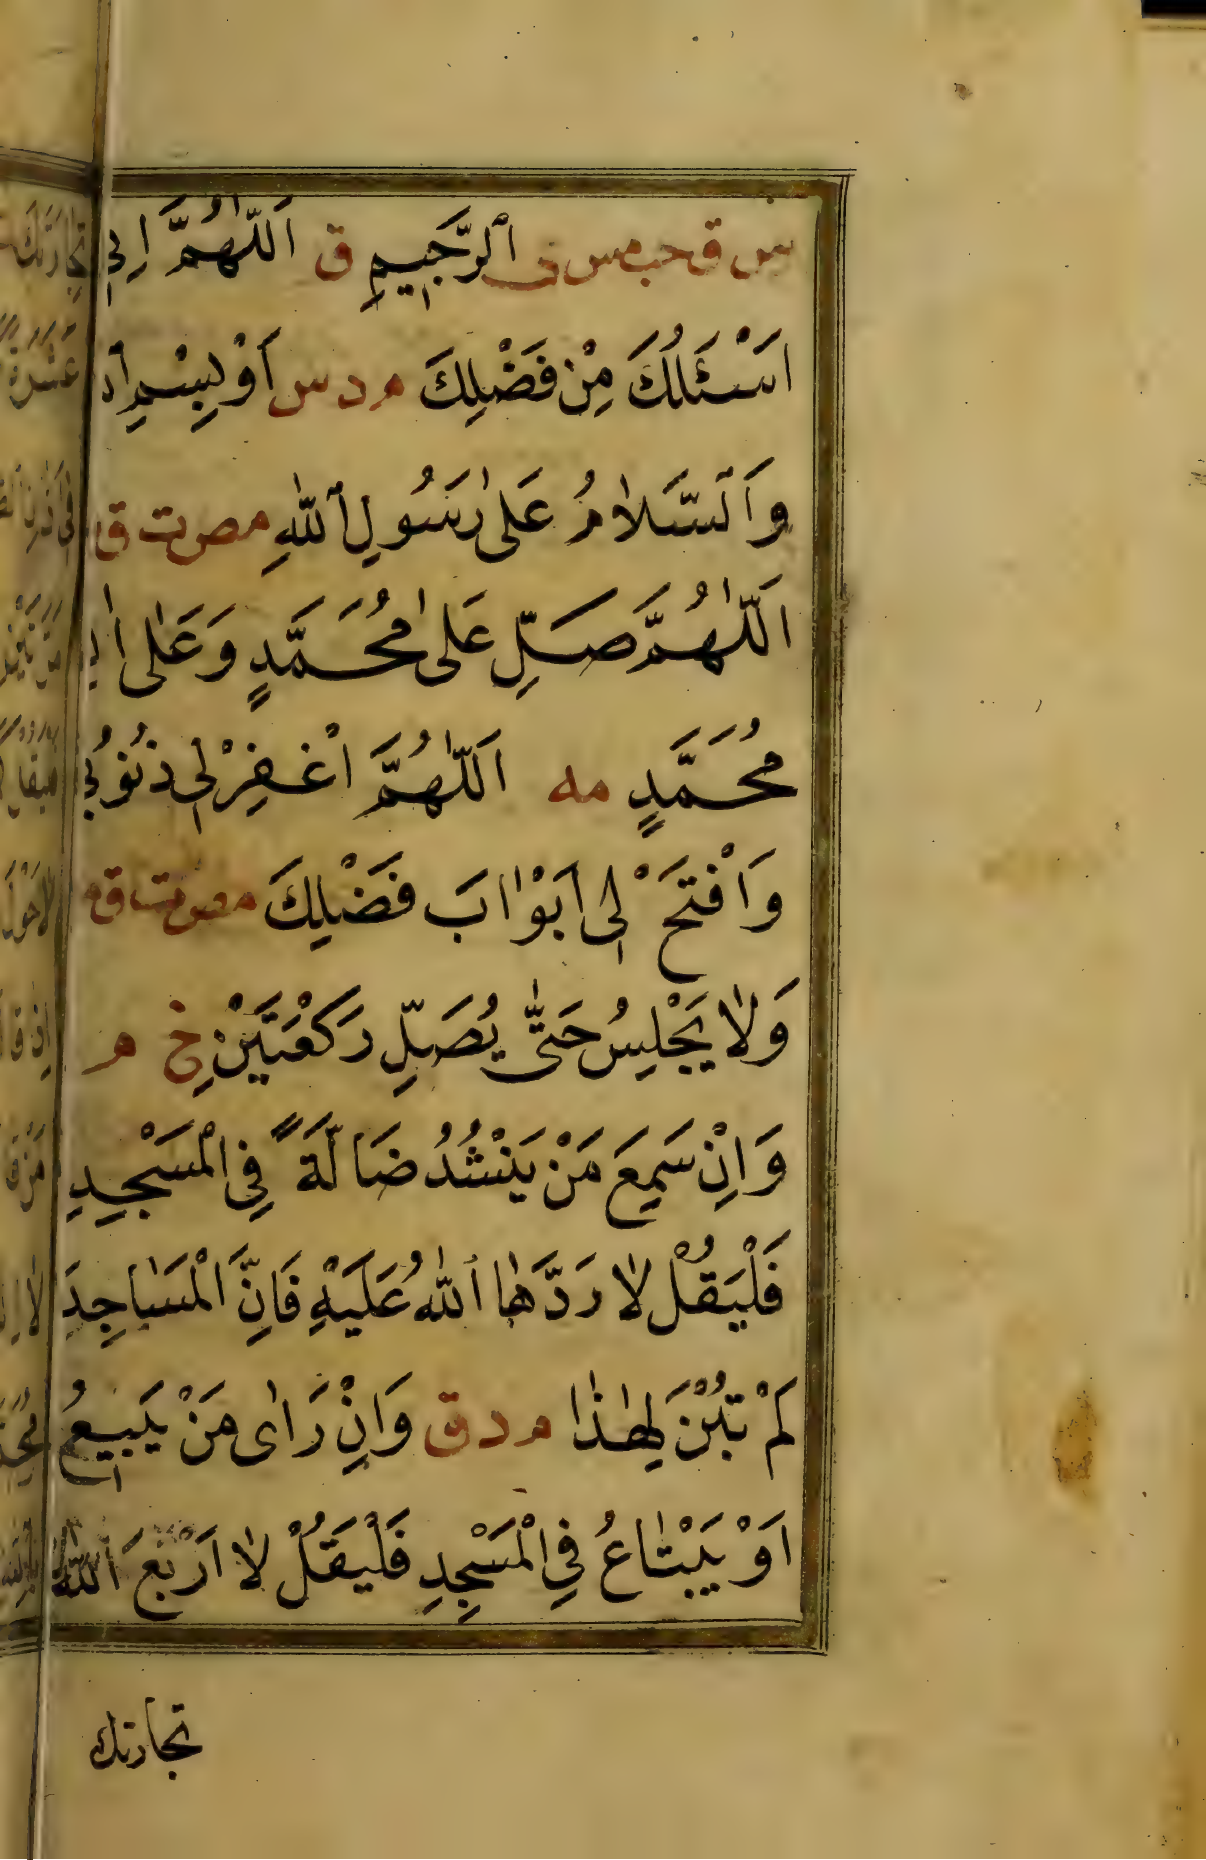 س ق حب مس ى اَلرَّجِيمِ ق اَللّٰهُمَّ اِنِّي
اَسْئَلُكَ مِنْ فَضْلِكَ م د س اَوْ بِسْمِ
وَاَلسَّلَامُ عَلٰى رَسُولِ اللّٰهِ مص ت ق
اَللّٰهُمَّ صَلِّ عَلٰى مُحَمَّدٍ وَعَلٰى اٰلِ
مُحَمَّدٍ مه اَللّٰهُمَّ اغْفِرْ لِي ذُنُوبِي
وَافْتَحْ لِي اَبْوَابَ فَضْلِكَ مص ت ق مه
وَلَا يَجْلِسُ حَتّٰى يُصَلِّ رَكْعَتَيْنِ خ م
وَاِنْ سَمِعَ مَنْ يَنْشُدُ ضَالَّةً فِي الْمَسْجِدِ
فَلْيَقُلْ لَا رَدَّهَا اللّٰهُ عَلَيْهِ فَاِنَّ الْمَسَاجِدَ
لَمْ تُبْنَ لِهٰذَا م د ق وَاِنْ رَاٰى مَنْ يَبِيعُ
اَوْ يَبْتَاعُ فِي الْمَسْجِدِ فَلْيَقُلْ لَا اَرْبَعَ اللّٰهُ
تجارتك